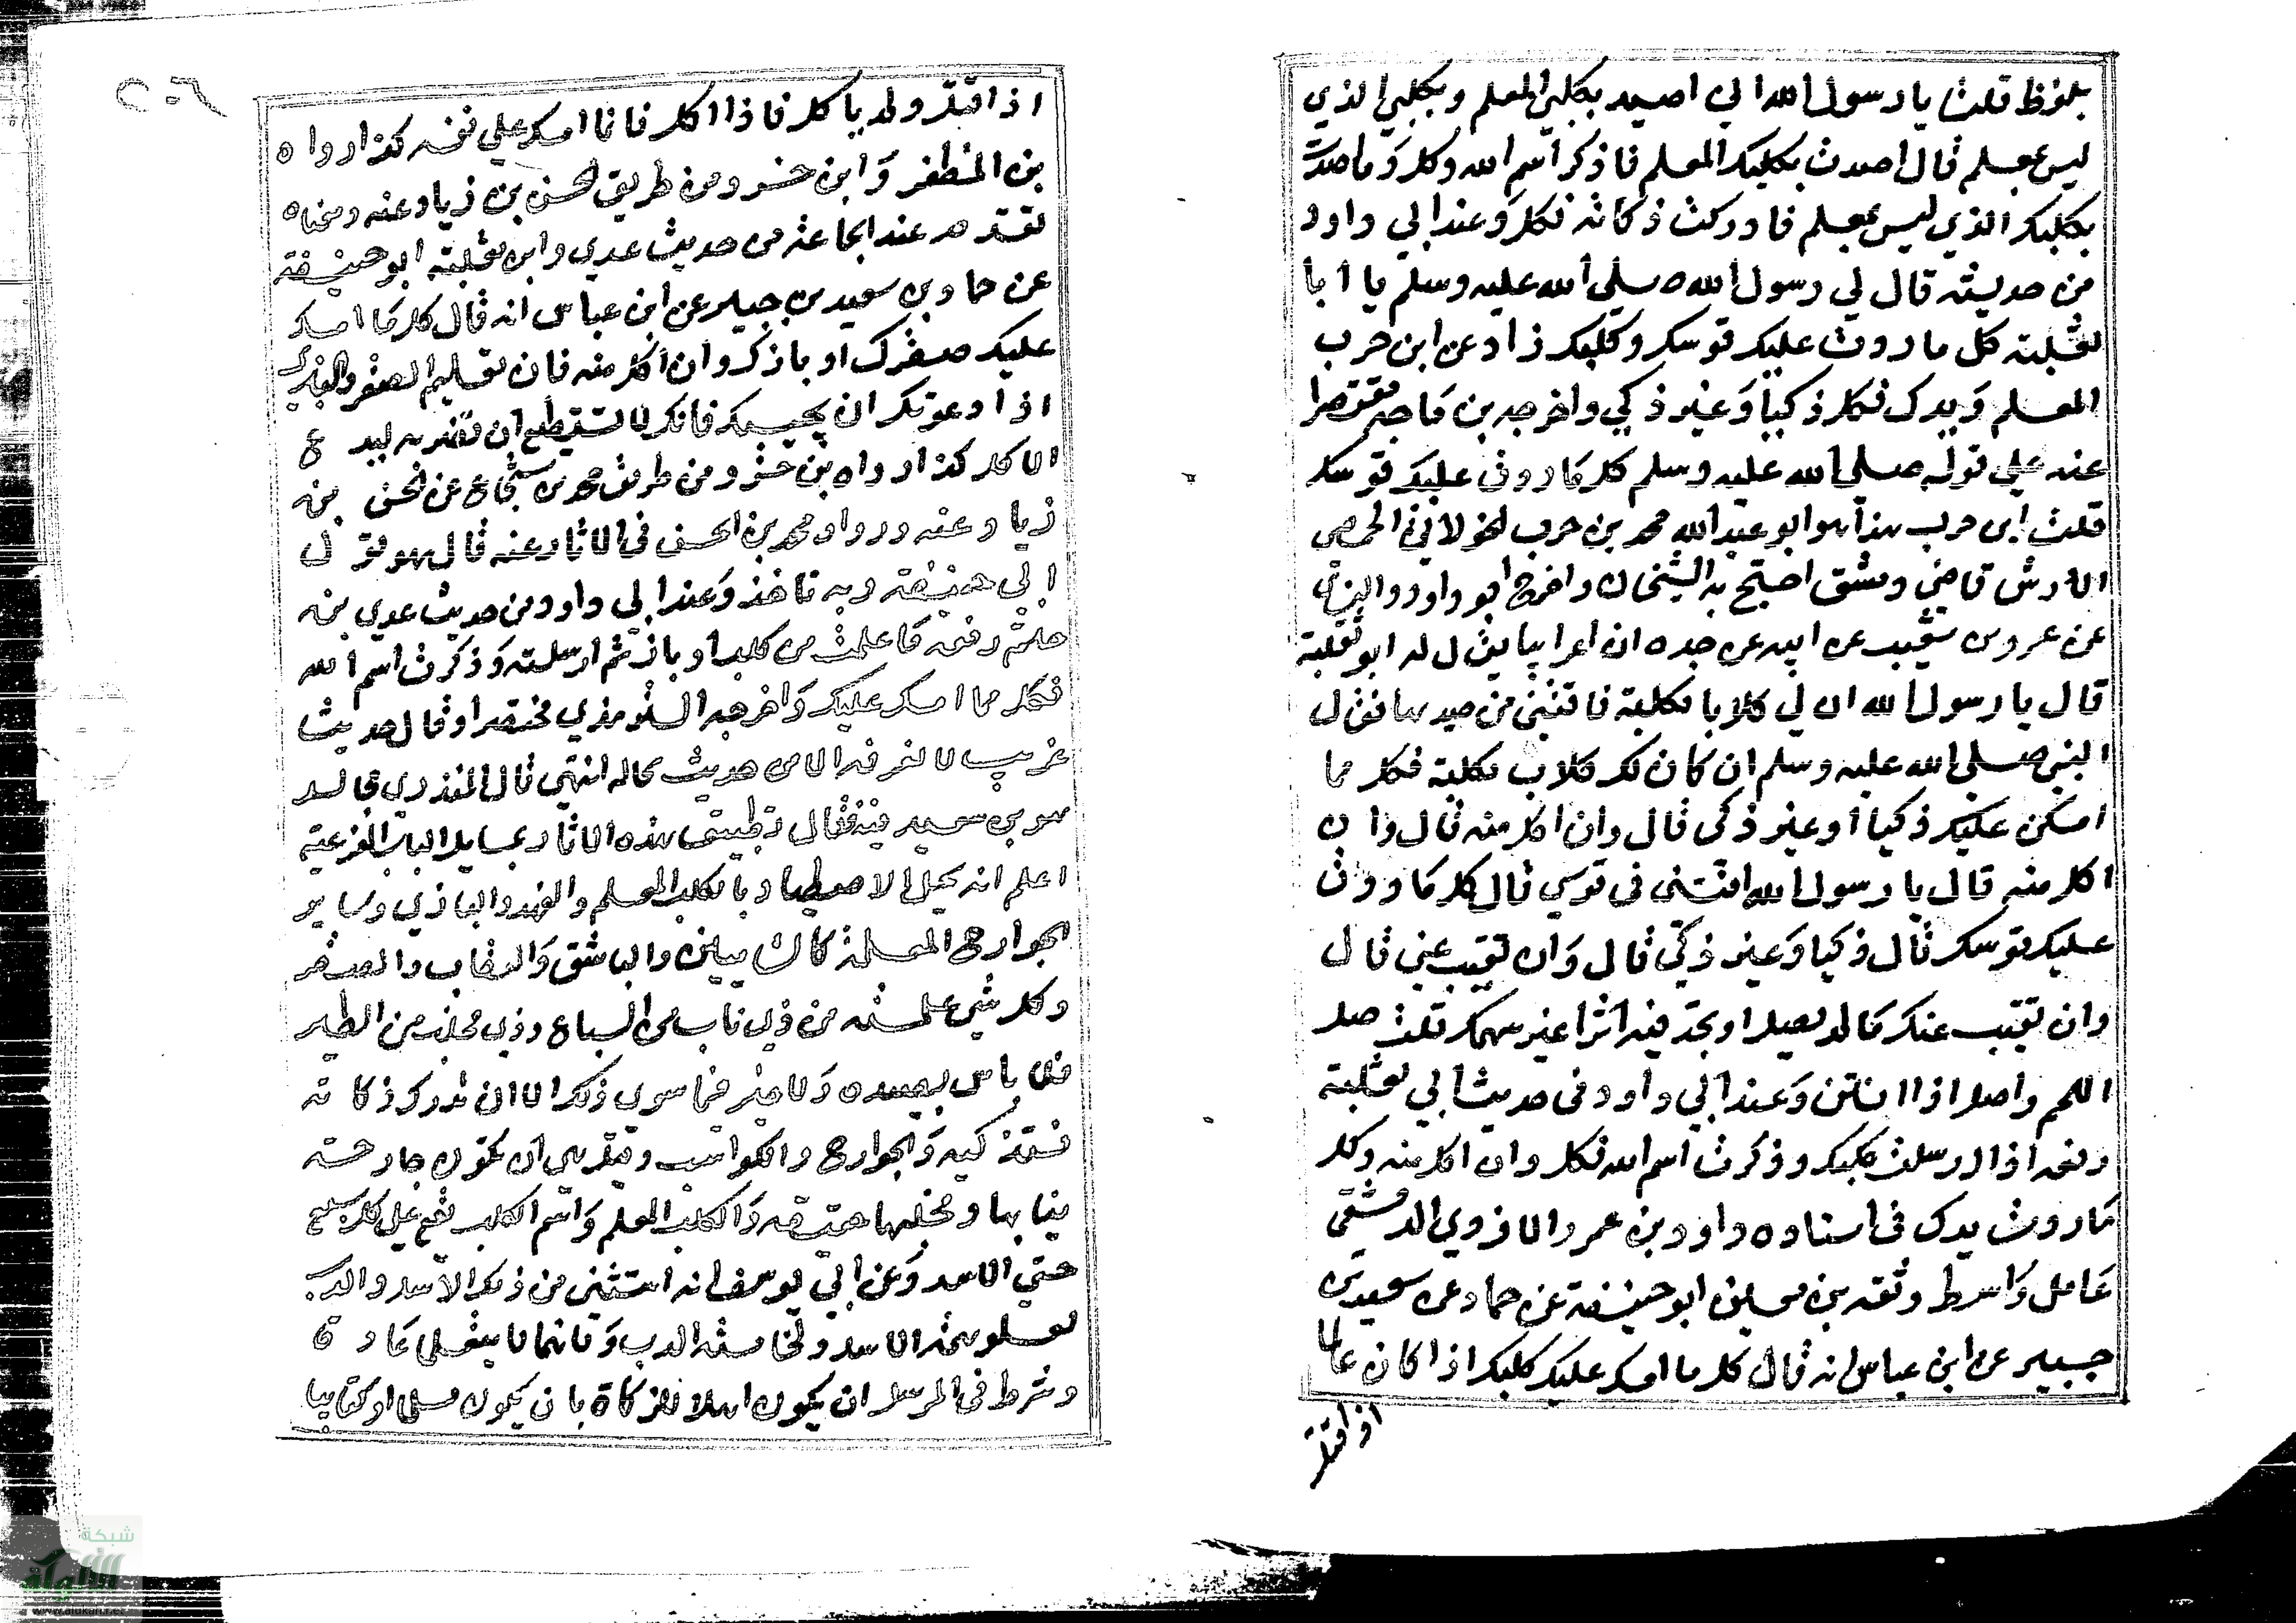 بلفظ قلت يا رسول الله اني اصيد بكلبي المعلم وبكلبي الذي
ليس بمعلم قال ما صدت بكلبك المعلم فاذكر اسم الله وكل وما صدت
بكلبك الذي ليس بمعلم فادركت ذكاته فكل وعند ابي داود
من حديثه قال لي رسول الله صلي الله عليه وسلم يا ابا
ثعلبة كل ما ردت عليك قوسك وكلبك زاد عن ابن حرب
المعلم ويدك فكل ذكيا وغير ذكي واخرجه بن ماجه مقتصرا
عنه علي قوله صلي الله عليه وسلم كل ما ردت عليك قوسك
قلت ابن حرب هذا هو ابو عبد الله محمد بن حرب الخولاني الحمصي
الابرش قاضي دمشق احتج به الشيخان واخرج ابو داود والنسائي
عن عمرو بن شعيب عن ابيه عن جده ان اعرابيا يقال له ابو ثعلبة
قال يا رسول الله ان لي كلابا مكلبة فافتني من صيدها فقال
النبي صلي الله عليه وسلم ان كان لك كلاب مكلبة فكل مما
امسكن عليك ذكيا او غير ذكي قال وان اكل منه قال وان
اكل منه قال يا رسول الله افتني في قوسي قال كل ما ردت
عليك قوسك قال ذكيا وغير ذكي قال وان تغيب عني قال
وان تغيب عنك ما لم يصل او تجد فيه اثرا غير سهمك قلت صل
اللحم واصل اذا انتن وعند ابي داود في حديث ابي ثعلبة
رفعه اذا ارسلت كلبك وذكرت اسم الله فكل وان اكل منه وكل
ما ردت يدك في اسناده داود بن عمرو الازدي الدمشقي
عامل واسط وثقه بن معين ابو حنيفة عن حماد عن سعيد بن
جبير عن ابن عباس انه قال كل ما امسك عليك كلبك اذا كان عالما
اذا قتل
اذا قتل ولم ياكل فاذا اكل فانما امسك علي نفسه كذا رواه
بن المظفر وابن خسرو من طريق الحسن بن زياد عنه ومعناه
تقدم عند الجماعة من حديث عدي وابن ثعلبة ابو حنيفة
عن حماد بن سعيد بن جبير عن ابن عباس انه قال كل ما امسك
عليك صقرك او بازك وان اكل منه فان تعليم الصقر والبازي
اذا دعوتك ان يجيبك فانك لا تستطيع ان تضربه ليدع
الاكل كذا رواه بن خسرو من طريق محمد بن شجاع عن الحسن بن
زياد عنه ورواه محمد بن الحسن في الاثار عنه قال هو قول
ابي حنيفة وبه ناخذ وعند ابي داود من حديث عدي بن
حاتم رفعه ما علمت من كلب او باز ثم ارسلته وذكرت اسم الله
فكل مما امسك عليك واخرجه الترمذي مختصرا وقال حديث
غريب لا نعرفه الا من حديث مجالد انتهي قال المنذري مجالد
هو بن سعيد فيه مقال تطبيق هذه الاثار بمسايل الباب الفرعية
اعلم انه يحل الاصطياد بالكلب المعلم والفهد والبازي وساير
الجوارح المعلمة كالشاهين والباشق والعقاب والصقر
وكل شي علمته من ذي ناب من السباع وذي مخلب من الطير
فلا باس بصيده ولا خير فيما سوي ذلك الا ان تدرك ذكاته
فتذكيه والجوارح والكواسب وقيل هي ان تكون جارحة
بنابها ومخلبها حقيقة والكلب المعلم واسم الكلب يقع علي كل سبع
حتي الاسد وعن ابي يوسف انه استثني من ذلك الاسد والدب
لعلو همة الاسد ولخاسة الدب ولانهما لا يتعلمان عادة
وشرط في المرسل ان يكون اهلا للزكاة بان يكون مسلما او كتابيا
شبكة
الألوكة
www.alukah.net